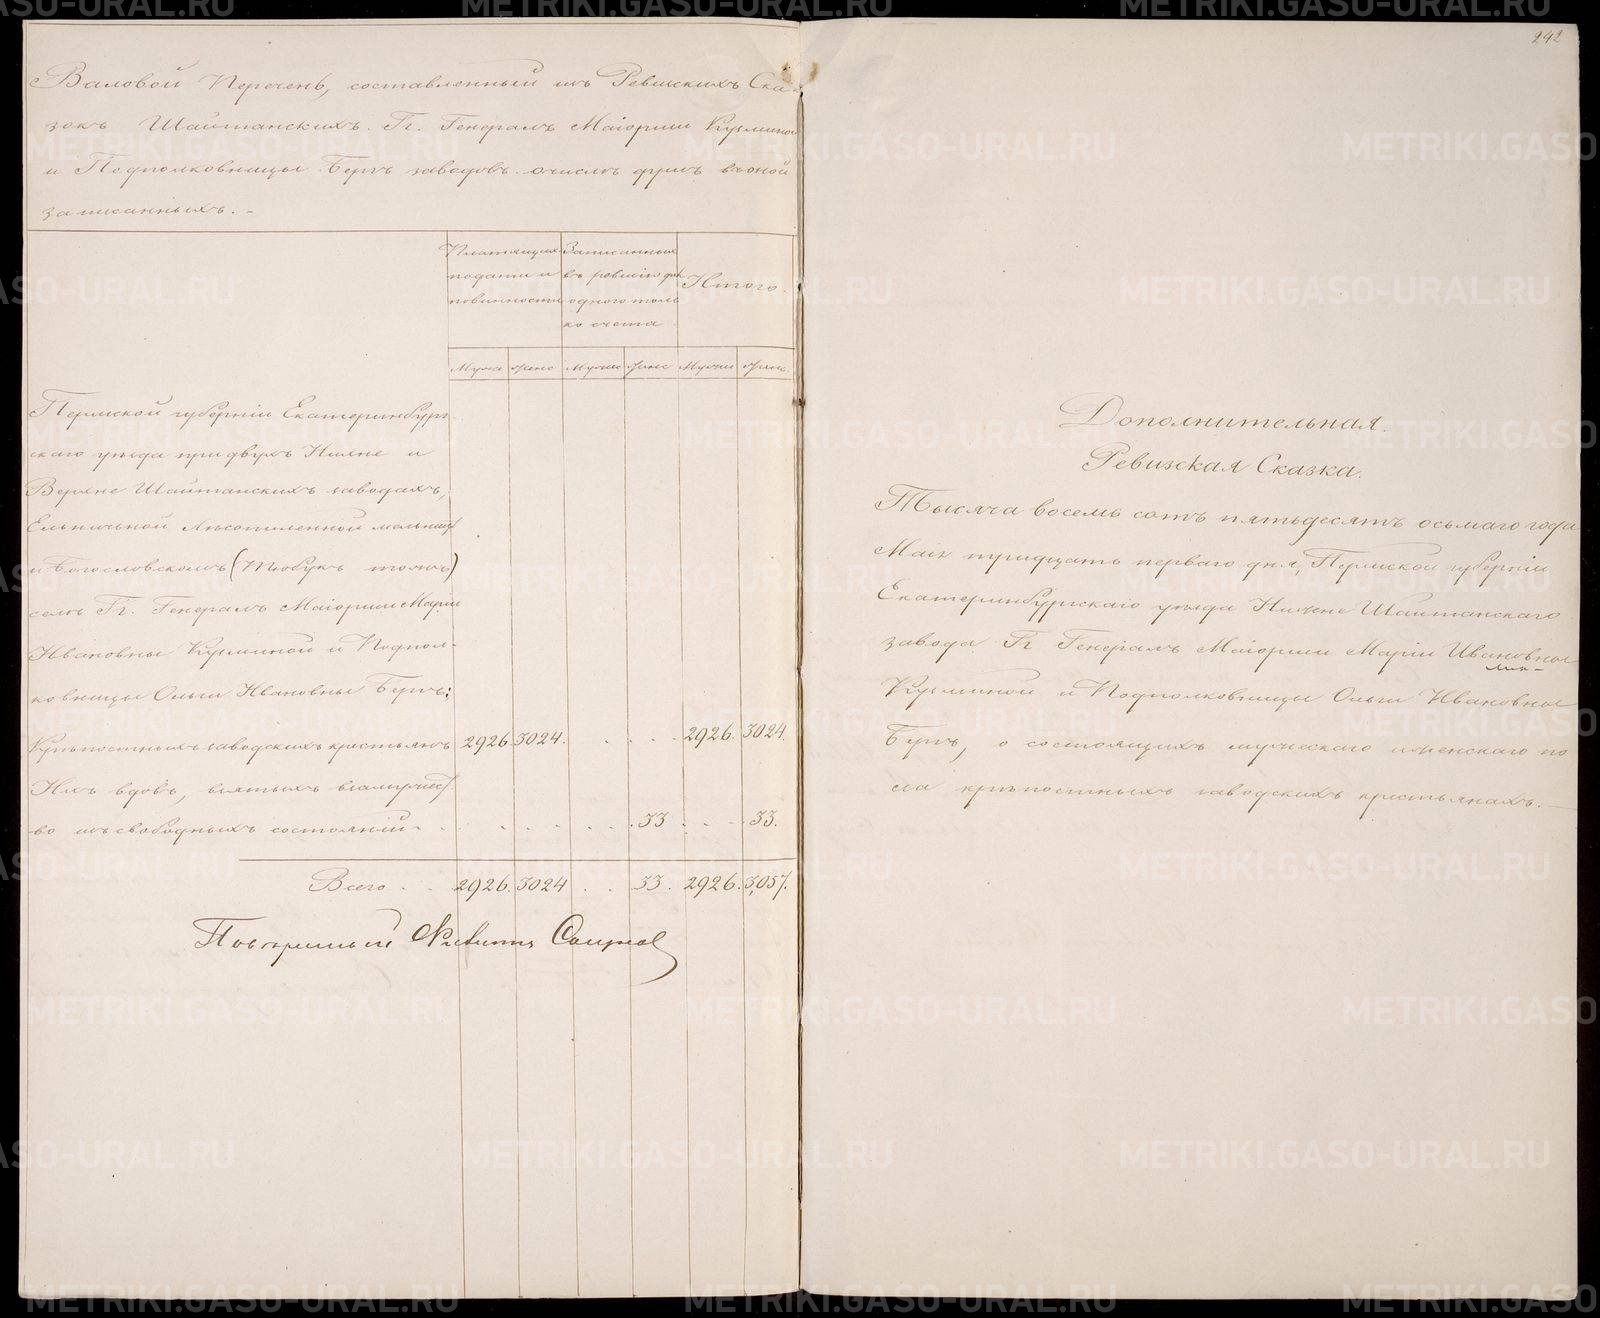 Валовой Перечень, составленный изъ Ревизскихъ Ска-
зокъ Шайтанскихъ Гг. Генералъ Маіорши Кузьминой
и Подполковницы Бергъ заводовъ о числѣ душъ въ оной
записанныхъ. -
Платящихъ подати и повинности
Записанныхъ въ ревизію для одного толь ко счета
Итого.
Мужес Женс Мужес Женс Мужес Женс.
Пермской губерніи Екатеринбург-
скаго уѣзда при двухъ Нижне и
Верхне Шайтанскихъ заводахъ,
Ельничьной лѣсопиленной мельницѣ
и Богословскомъ (Тюбукъ тожъ)
селѣ Гг. Генералъ Маіорши Маріи
Ивановны Кузьминой и Подпол-
ковницы Ольги Ивановны Бергъ:
Крѣпостныхъ заводскихъ крестьянъ 2926. 3024. . . . 2926. 3024.
Ихъ вдовъ, взятыхъ въ замужест
во изъ свободныхъ состояній - . . . . . . . 33 . . . 33.
Всего . . 2926. 3024 . . 33. 2926. 3,057.
Повѣренный
242
Дополнительная.
Ревизская Сказка.
Тысяча восемь сотъ пятьдесятъ осьмаго года
Маія тридцать перваго дня, Пермской губерніи
Екатеринбургскаго уѣзда Нижне Шайтанскаго
завода Гг Генералъ Маіорши Маріи Ивановны
Кузьминой и Подполковницы Ольги Ивановны
Бергъ, о состоящихъ мужескаго и женскаго по
ла крѣпостныхъ заводскихъ крестьянахъ. -
METRIKI.GASO-URAL.RU